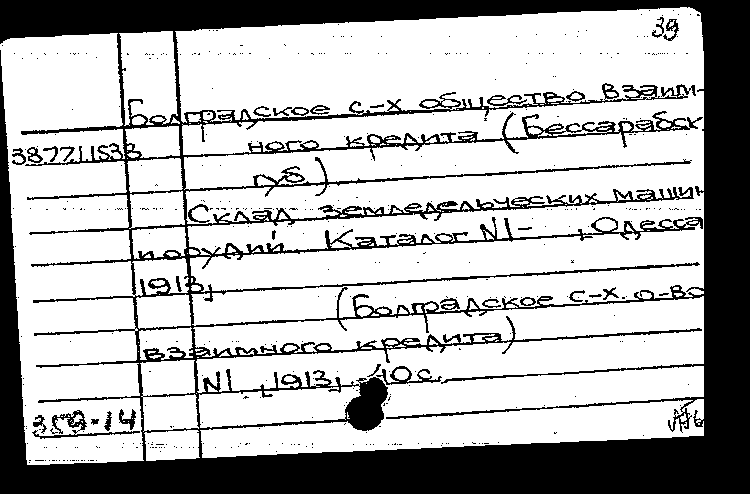 39
Болградское с.-х общество взаим-
ного кредита (Бессарабск.
губ.)
Склад земледельческих машин
и орудий. Каталог N1- , Одесса
1913,
(Болградское с.-х. о-во
взаимного кредита)
N1. 1913, 40с.
359-14